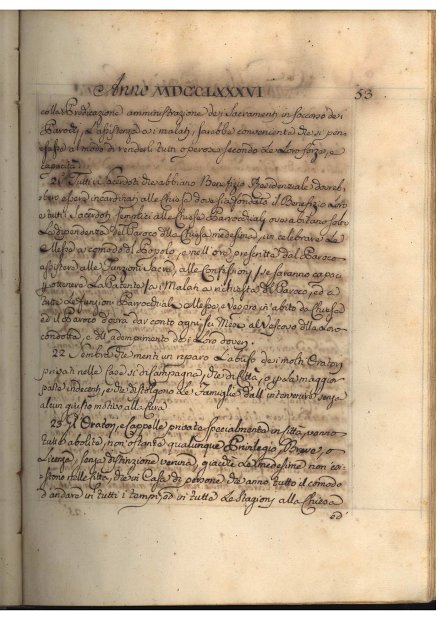 Anno MDCCLXXXVI 53
colla Predicazione amministrazione dei Sacramenti in soccorso dei
Parochi, e assistenza ai malati, sarebbe conveniente che si pen-
sasse al modo di renderli tutti operosi secondo le loro forze, e
capacità.
21. Tutti i Sacerdoti che abbiano Benefizio Residenziale dovreb-
bero essere incardinati alle Chiese dove sia fondato il Benefizio loro
e tutti i Sacerdoti semplici alle Chiese Parrocchiali ove abitano sotto
la dipendenza del Paroco della Chiesa medesima, in celebrare la
Messa a comodo del Popolo, e nell'ore prescritte dal Paroco
assistere alle Funzioni Sacre, alle Confessioni se saranno capaci
d'ottenere la Patente, ai Malati a richiesta del Paroco, ed a
tutte le funzioni Parrocchiali Messe, e Vespro in abito da Chiesa
ed il Paroco dovrà dar conto ogni sei Mesi al Vescovo della loro
condotta, e dell'adempimento dei loro doveri.
22. Sembra che meriti un riparo l'abuso dei molti Oratori
privati nelle Case di Campagna, che di Città, e per la maggior
parte indecenti, e che distolgono le Famiglie dall'intervenire senza
alcun giusto motivo alla Cura.
23. Gli Oratori, e Cappelle private specialmente in Città, vanno
tutte abolite, non ostante qualunque Privilegio, Breve, o
Licenza, senza distinzione veruna, giacchè le medesime non esi-
stono nelle Città, che in Casa di persone che anno tutto il comodo
d'andare in tutti i tempi, ed in tutte le Stagioni alla Chiesa